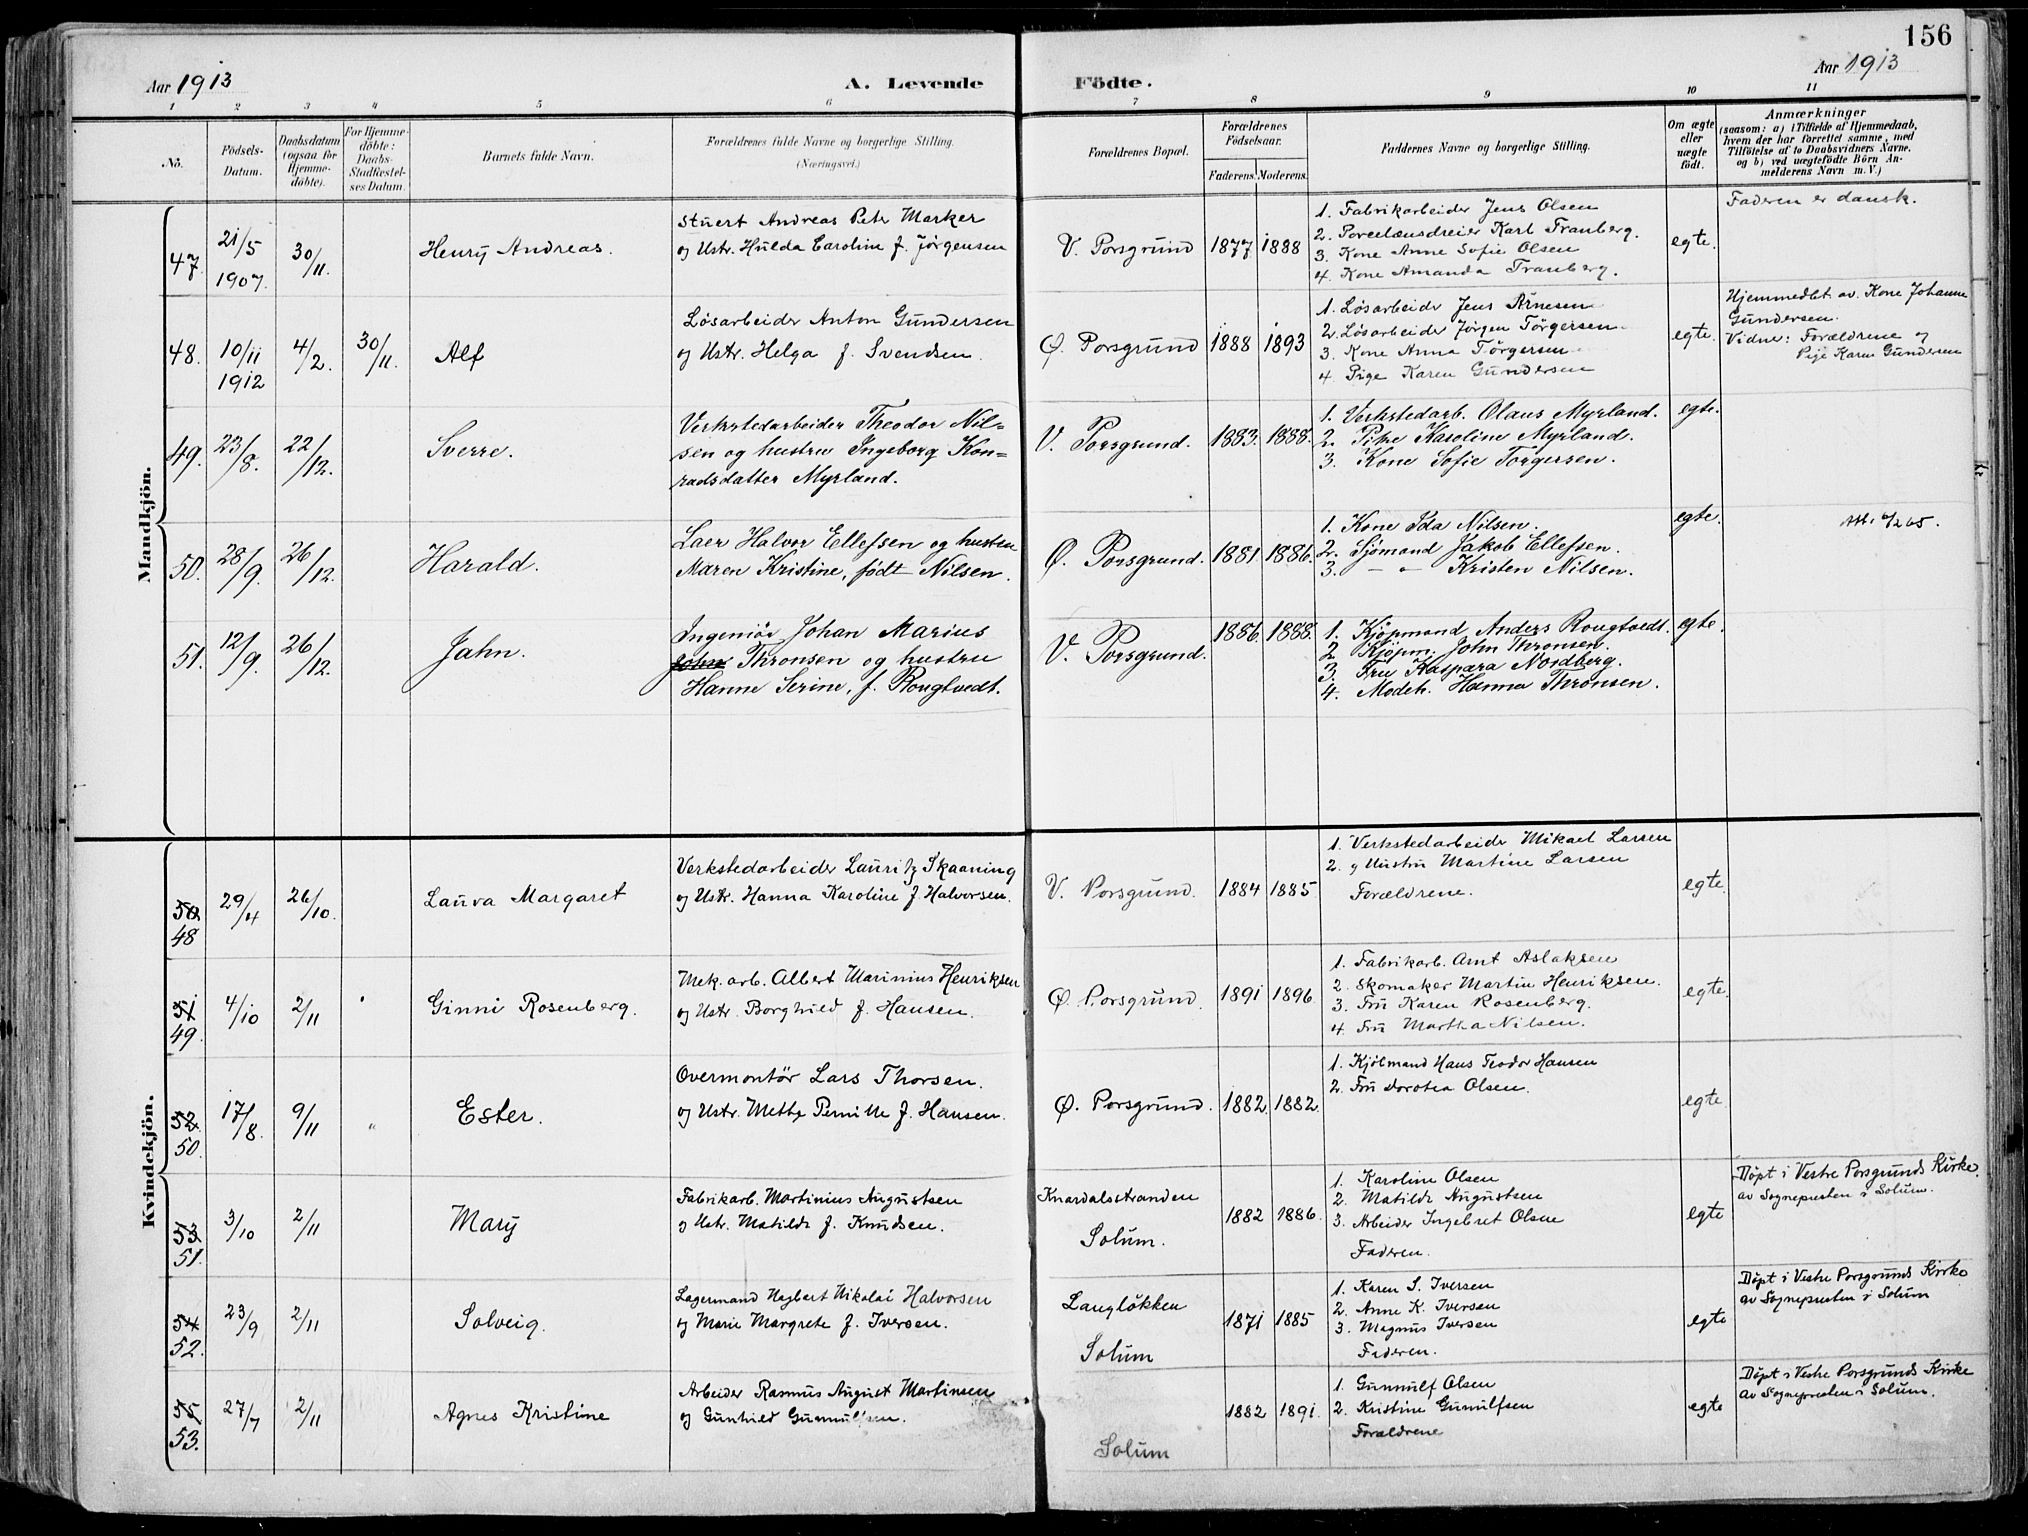 156
Aar 1913
A. Levende
Födte.
Aar 1913
1 2 3 4 5 6 7 8 9 10 11
No.
Födsels-
Datum.
Daabsdatum
(ogsaa for
Hjemme-
döbte).
For Hjemme-
döbte:
Daabs-
Stadfæstel-
ses Datum.
Barnets fulde Navn.
Forældrenes fulde Navne og borgerlige Stilling.
(Næringsvei.)
Forældrenes Bopæl.
Forældrenes
Födselsaar.
Faderens. Moderens.
Faddernes Navne og borgerlige Stilling.
Om ægte
eller
uægte
födt.
Anmærkninger
(saasom: a) i Tilfælde af Hjemmedaab,
hvem der har forrettet samme, med
Tilföielse af to Daabsvidners Navne.
og b) ved uægtefödte Börn An-
melderens Navn m. V.)
Mandkjön.
47.
21/5
1907.
30/11.
Henrÿ Andreas.
Stuert Andreas Petr Marker
og Ustr. Hulda Caroline f. Jørgensen
V. Porsgrund
1877. 1888
1. Fabrikarbeider Jens Olsen
2. Porcelænsdreier Karl Tranberg.
3. Kone Anne Sofie Olsen
4. Kone Amanda Tranberg.
egte.
Faderen er dansk.
48.
10/11
1912
4/2.
30/11.
Alf
Løsarbeider Anton Gundersen
og Ustr. Helga f. Svendsen.
Ø. Porsgrund
1888 1893
1. Løsarbeidr Jens Arnesen
2. Løsarbeidr Jørgen Törgersen
3. Kone Anna Törgersen
4. Pige Karen Gundersen
egte.
Hjemmedbt. av. Kone Johanne
Gundersen.
Vidne: Forældrene og
Pige Karen Gundersen
49.
23/8.
22/12.
Sverre.
Verkstedarbeider Theodor Nil=
sen og hustru Ingeborg Kon=
radsdatter Myrland.
V. Porsgrund.
1883. 1888.
1. Verkstedarb. Olaus Myrland.
2. Pike Karoline Myrland.
3. Kone Sofie Torgersen.
egte.
50.
28/9.
26/12.
Harald.
Laer Halvor Ellefsen og hustru
Maren Kristine, født Nilsen.
Ø. Porsgrund.
1881. 1886.
1. Kone Ida Nilsen.
2. Sjömand Jakob Ellefsen.
3. — " — Kristen Nilsen.
egte.
51.
12/9.
26/12.
Jahn.
Ingeniør Johan Marius
Thronsen og hustru
Hanne Serine, f. Rougtvedt.
V. Porsgrund.
1886. 1888.
1. Kjöpmand Anders Rougtvedt.
2. Kjöpm. John Thronsen.
3. Fru Kaspara Nordberg.
4. Modeh. Hanna Thronsen.
egte.
Kvindekjön.
50
48
29/4
26/10.
Laura Margaret
Verkstedarbeider Lauritz Skaaning
og Ustr. Hanna Karoline f. Halvorsen.
V. Porsgrund.
1884 1885
1. Verkstedarbeidr Mikael Larsen
2. og Hustru Martine Larsen
Forældrene.
egte.
51
49.
4/10
2/11
Ginni Rosenberg.
Mek. arb. Albert Marinius Henriksen
og Ustr. Borghild f. Hansen.
Ø. Porsgrund.
1891 1896.
1. Fabrikarb. Arnt Aslaksen
2. Skomaker Martin Henriksen.
3. Fru Karen Rosenberg.
4. Fru Martha Nilsen.
egte.
52
50.
17/8.
9/11
"
Ester.
Overmontör Lars Thorsen.
og Ustr. Mette Pernille f. Hansen.
Ø. Porsgrund.
1882 1882.
1. Kjölmand Hans Teodor Hansen
2. Fru Dorotea Olsen.
egte.
53
51.
3/10
2/11
Marÿ
Fabrikarb. Martinius Augustsen
og Ustr. Matilde f. Knudsen.
Knardalsstranden
Solum.
1882 1886.
1. Karoline Olsen
2. Matilde Augustsen
3. Arbeider Ingebret Olsen
Faderen.
egte
Döpt i Vestre Porsgrunds Kirke.
av Sognepresten i Solum.
54
52.
23/9
2/11
Solveig.
Lagermand Hagbart Nikolai Halvorsen
og Marie Margrete f. Iversen.
Langløkken
Solum
1871 1885
1. Karen S. Iversen
2. Anne K. Iversen
3. Magnus Iversen
Faderen.
egte
Döpt i Vestre Porsgrunds Kirke
av Sognepresten i Solum
55
53.
27/7
2/11
Agnes Kristine
Arbeider Rasmus August Martinsen
og Gunhild Gunnulfsen.
Solum
1882 1891.
1. Gunnulf Olsen
2. Kristine Gunulfsen
Forældrene
egte
Döpt i Vestre Porsgrunds Kirke
av Sognepresten i Solum.